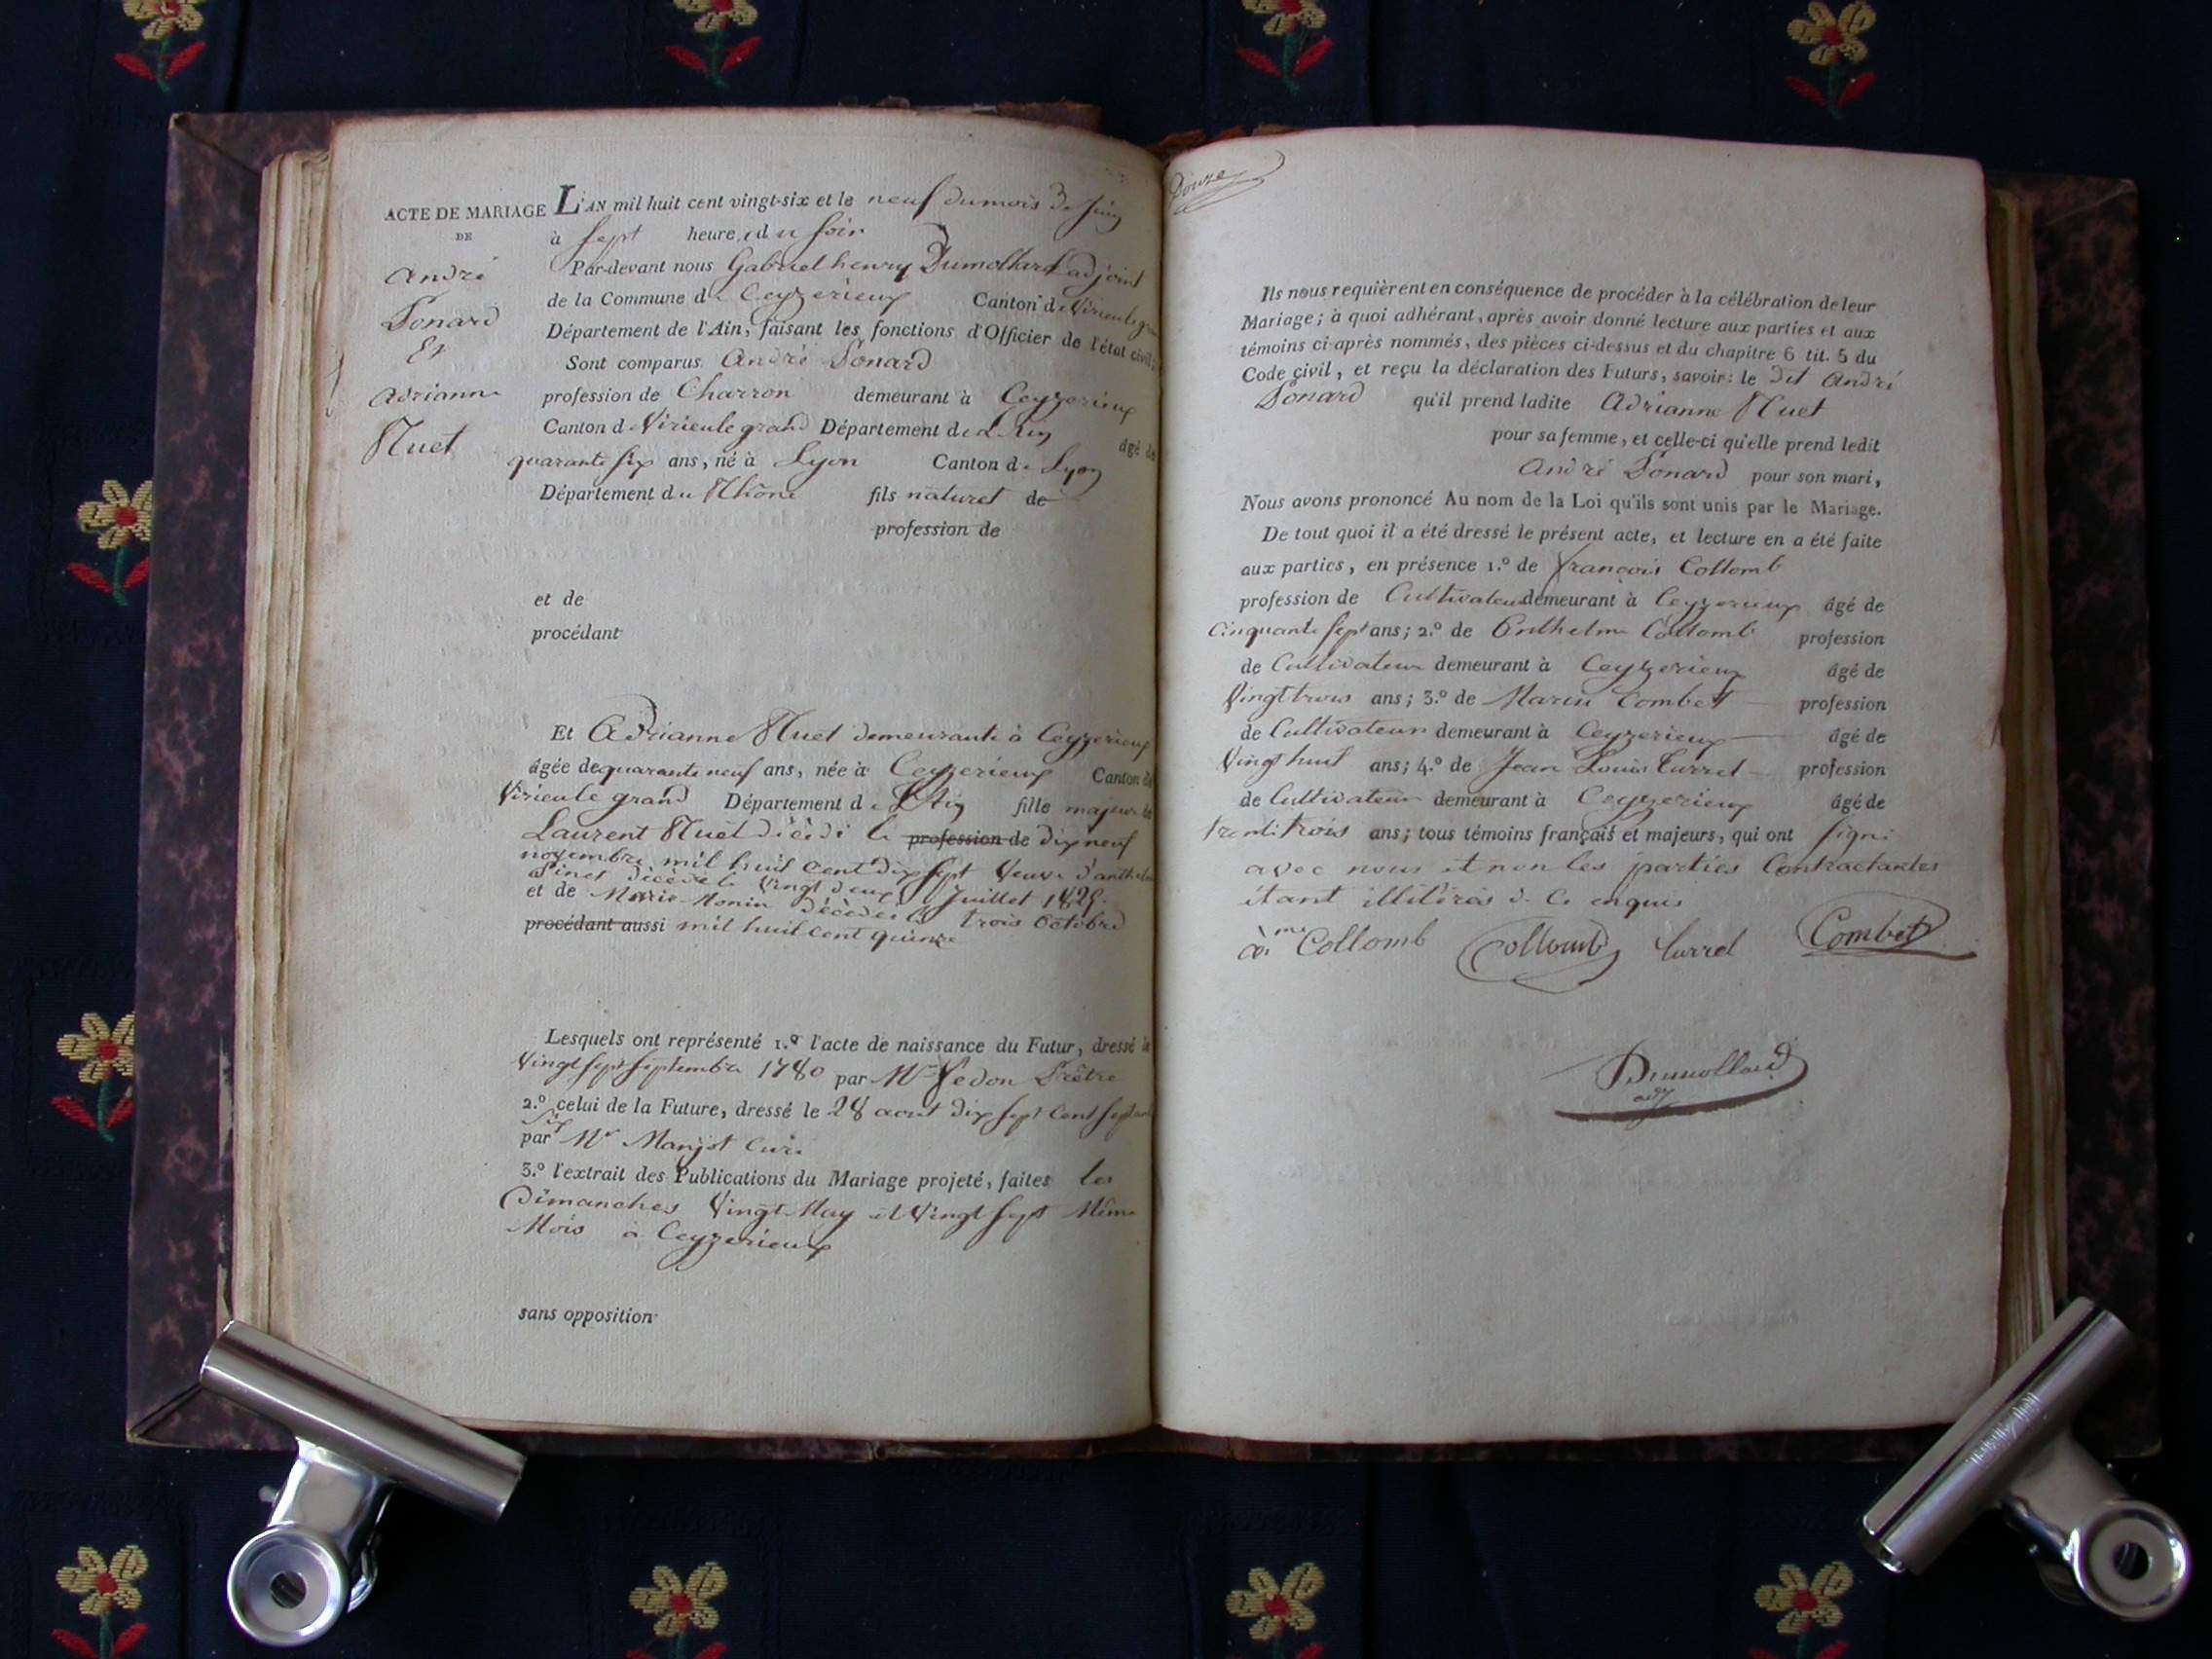 ACTE DE MARIAGE
DE
André
Donard
Et
Adrianne
Nuet
L'AN mil huit cent vingt-six et le neuf du mois de Juin
à sept heures du soir
Par-devant nous Gabriel henry Dumollard adjoint
de la Commune de Ceyzerieux Canton de Virieu le gran
Département de l'Ain, faisant les fonctions d'Officier de l'état civil;
Sont comparus André Donard
profession de Charron demeurant à Ceyzerieux
Canton de Virieu le grand Département de L'Ain âgé de
quarante six ans, né à Lyon Canton de Lyon
Département du Rhône fils naturel de
profession de
et de
procédant
Et Adrianne Nuet demeurante à Ceyzerieux
âgée de quarante neuf ans, née à Ceyzerieux Canton de
Virieu le grand Département de L'Ain fille majeure de
Laurent Nuet décédé le profession de dix neuf
novembre mil huit cent dix sept Veuve d'anthelme
décédé le Vingt deux Juillet
et de Marie Monin décédée le trois Octobre
procédant aussi mil huit cent quinze
Lesquels ont représenté 1.º l'acte de naissance du Futur, dressé le
Vingt sept Septembre 1780 par Mr Prêtre
2.º celui de la Future, dressé le 28 aout dix sept Cent septante
Six
par Mr Curé
3.º l'extrait des Publications du Mariage projeté, faites les
Dimanches Vingt May et Vingt Sept Même
Mois à Ceyzerieux
sans opposition
Douze
Ils nous requièrent en conséquence de procéder à la célébration de leur
Mariage; à quoi adhérant, après avoir donné lecture aux parties et aux
témoins ci-après nommés, des pièces ci-dessus et du chapitre 6 tit. 5 du
Code civil, et reçu la déclaration des Futurs, savoir: le dit André
Donard qu'il prend ladite Adrianne Nuet
pour sa femme, et celle-ci qu'elle prend ledit
André Donard pour son mari,
Nous avons prononcé Au nom de la Loi qu'ils sont unis par le Mariage.
De tout quoi il a été dressé le présent acte, et lecture en a été faite
aux parties, en présence 1.º de françois Collomb
profession de Cultivateur demeurant à Ceyzerieux âgé de
Cinquante sept ans; 2.º de Anthelme Collomb profession
de Cultivateur demeurant à Ceyzerieux âgé de
Vingt trois ans; 3.º de Marin Combet profession
de Cultivateur demeurant à Ceyzerieux âgé de
Vingt huit ans; 4.º de Jean Louis Turrel profession
de Cultivateur demeurant à Ceyzerieux âgé de
trente trois ans; tous témoins français et majeurs, qui ont signé
avec nous et non les parties Contractantes
étant illitérés de Ce enquis
Collomb Collomb turrel Combet
Dumollard
adj